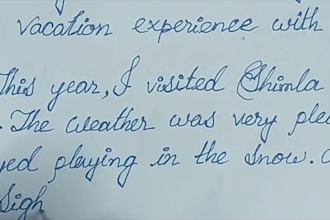 vacation experience with
This year, I visited Shimla
. The weather was very plea
yed playing in the snow.
Sigh